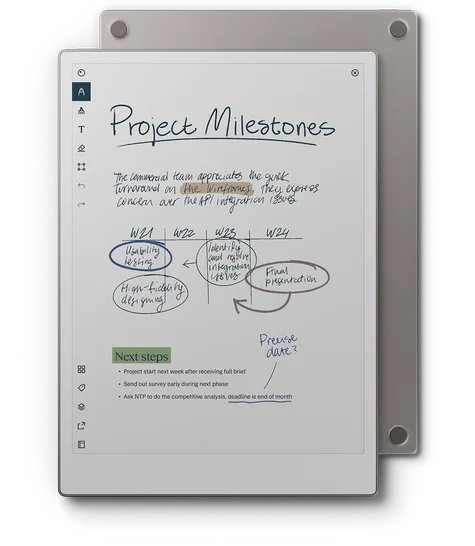 Project Milestones
The commercial team appreciates the quick
turnaround on the wireframes, they express
concern over the API integration issues
W21 W22 W23 W24
Usability
testing
High-fidelity
designing
Identify
and resolve
integration
issues
Final
presentation
Precise
date?
Next steps
• Project start next week after receiving full brief
• Send out survey early during next phase
• Ask NTP to do the competitive analysis, deadline is end of month